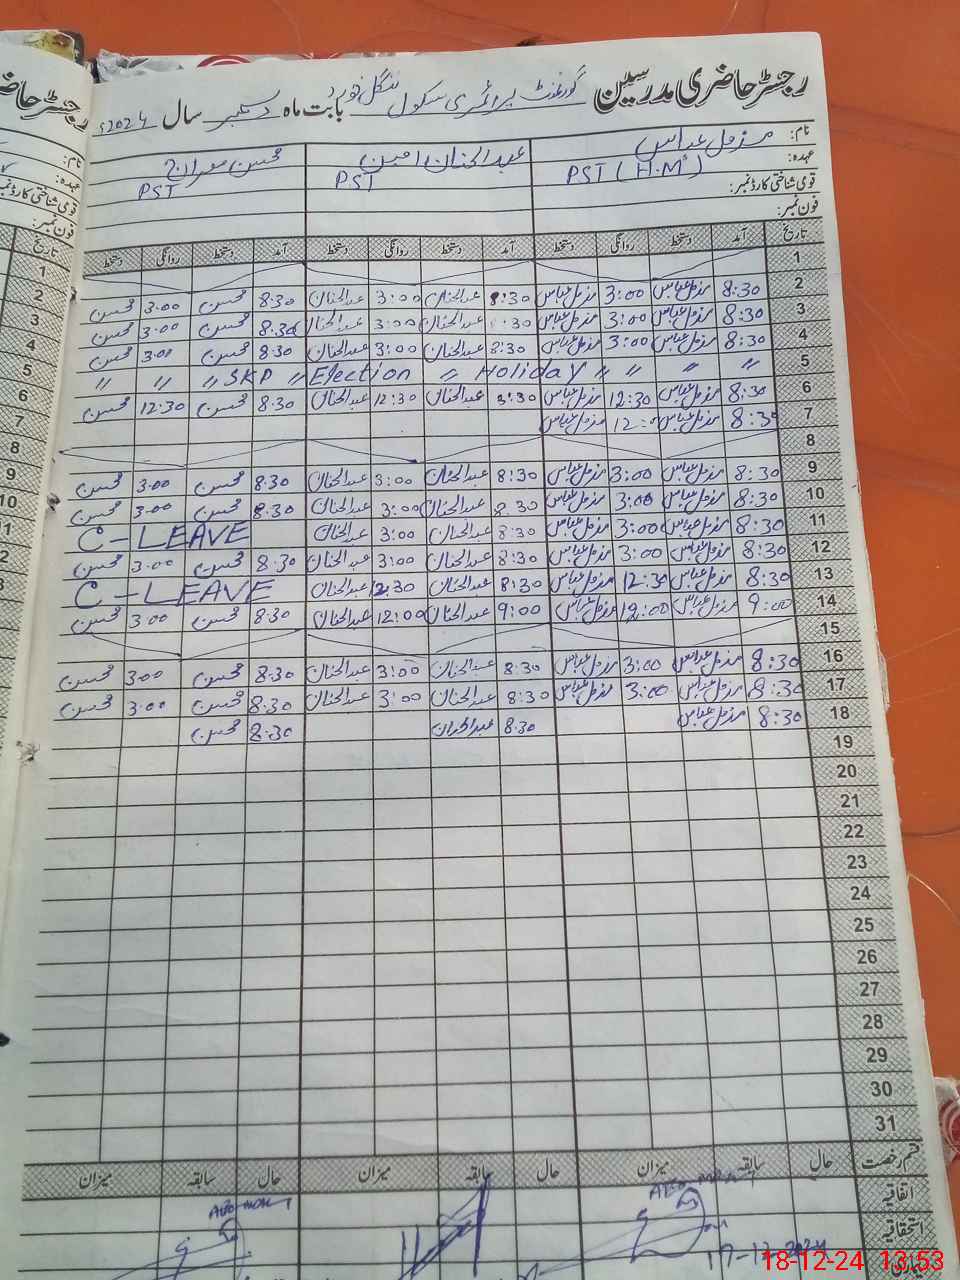 رجسٹر حاضری مدرسین گورنمنٹ پرائمری سکول ننگل خورد بابت ماہ دسمبر سال 2024ء
نام: مزمل عباس عبدالحنان امین محسن معراج
عہدہ: PST (H.M) PST PST
قومی شناختی کارڈ نمبر:
فون نمبر:
تاریخ آمد دستخط روانگی دستخط آمد دستخط روانگی دستخط آمد دستخط روانگی دستخط
1
2 8:30 مزمل عباس 3:00 مزمل عباس 8:30 عبدالحنان 3:00 عبدالحنان 8:30 محسن 3:00 محسن
3 8:30 مزمل عباس 3:00 مزمل عباس :30 عبدالحنان 3:00 عبدالحنان 8:30 محسن 3:00 محسن
4 8:30 مزمل عباس 3:00 مزمل عباس 8:30 عبدالحنان 3:00 عبدالحنان 8:30 محسن 3:00 محسن
5 " " " " SKP " Election " Holiday " " " "
6 8:30 مزمل عباس 12:30 مزمل عباس 8:30 عبدالحنان 12:30 عبدالحنان 8:30 محسن 12:30 محسن
7 8:30 مزمل عباس 12: مزمل عباس
8
9 8:30 مزمل عباس 3:00 مزمل عباس 8:30 عبدالحنان 3:00 عبدالحنان 8:30 محسن 3:00 محسن
10 8:30 مزمل عباس 3:00 مزمل عباس 8:30 عبدالحنان 3:00 عبدالحنان 8:30 محسن 3:00 محسن
11 8:30 مزمل عباس 3:00 مزمل عباس 8:30 عبدالحنان 3:00 عبدالحنان C-LEAVE
12 8:30 مزمل عباس 3:00 مزمل عباس 8:30 عبدالحنان 3:00 عبدالحنان 8:30 محسن 3:00 محسن
13 8:30 مزمل عباس 12:30 مزمل عباس 8:30 عبدالحنان 12:30 عبدالحنان C-LEAVE
14 9:00 مزمل عباس 12:00 مزمل عباس 9:00 عبدالحنان 12:00 عبدالحنان 8:30 محسن 3:00 محسن
15
16 8:30 مزمل عباس 3:00 مزمل عباس 8:30 عبدالحنان 3:00 عبدالحنان 8:30 محسن 3:00 محسن
17 8:30 مزمل عباس 3:00 مزمل عباس 8:30 عبدالحنان 3:00 عبدالحنان 8:30 محسن 3:00 محسن
18 8:30 مزمل عباس 8:30 عبدالحنان 8:30 محسن
19
20
21
22
23
24
25
26
27
28
29
30
31
قسم رخصت حال سابقہ میزان حال سابقہ میزان حال سابقہ میزان
اتفاقیہ
استحقاقیہ
بیماری 17-12-2024
18-12-24 13:53